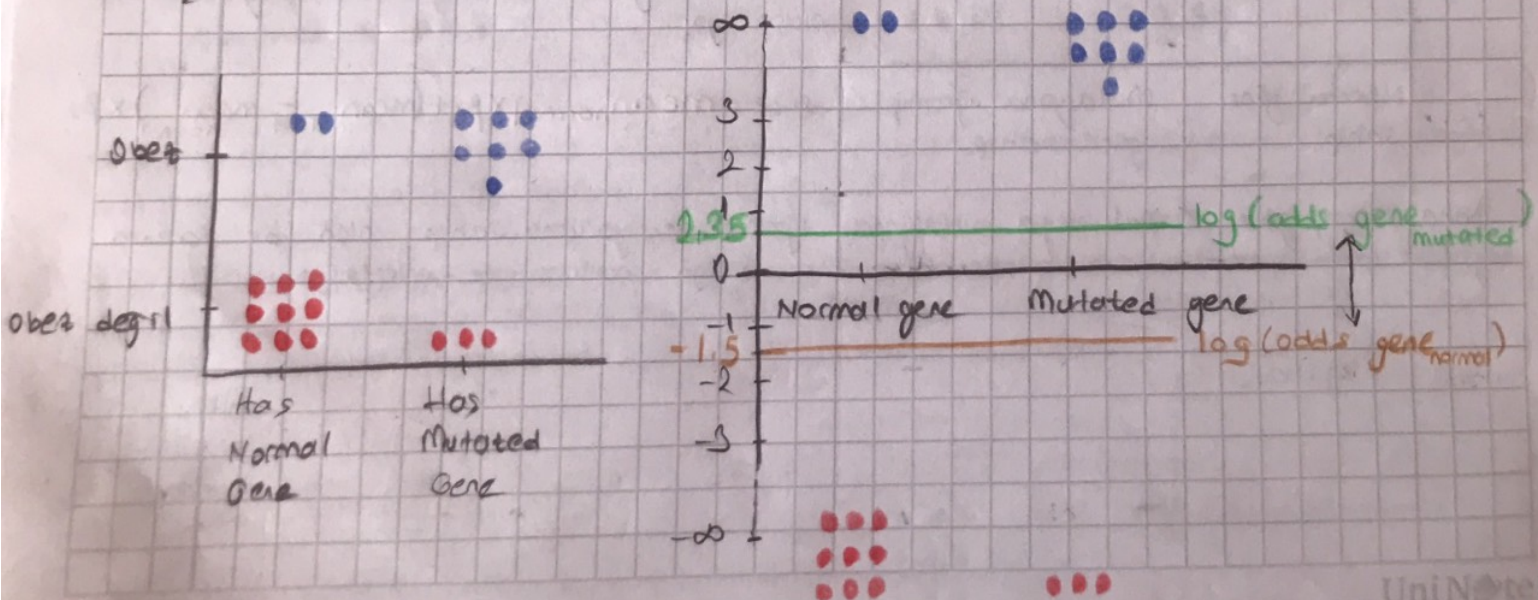 Obez
Obez degil
Has
Normal
Gene
Has
Mutated
Gene
∞
3
2
1
2,35
0
-1
-1,5
-2
-3
-∞
log(odds gene mutated)
Normal gene
Mutated gene
log(odds gene normal)
UniNote